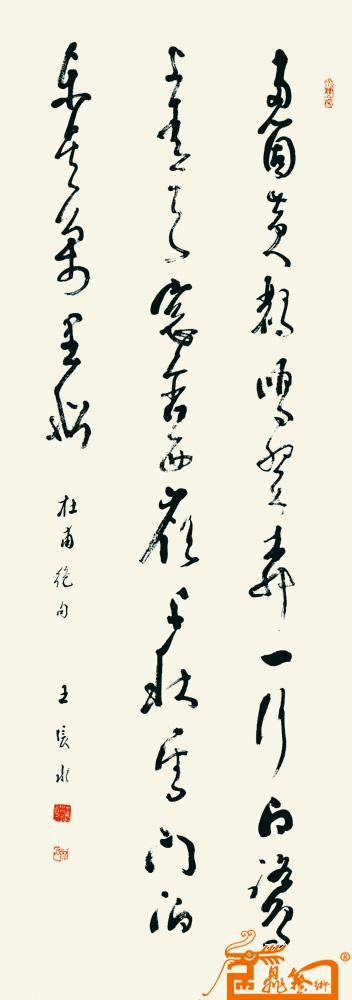 两個黄鹂鳴翠柳一行白鹭
上青天窓含西岭千秋雪门泊
东吴万里船
杜甫绝句
王長水